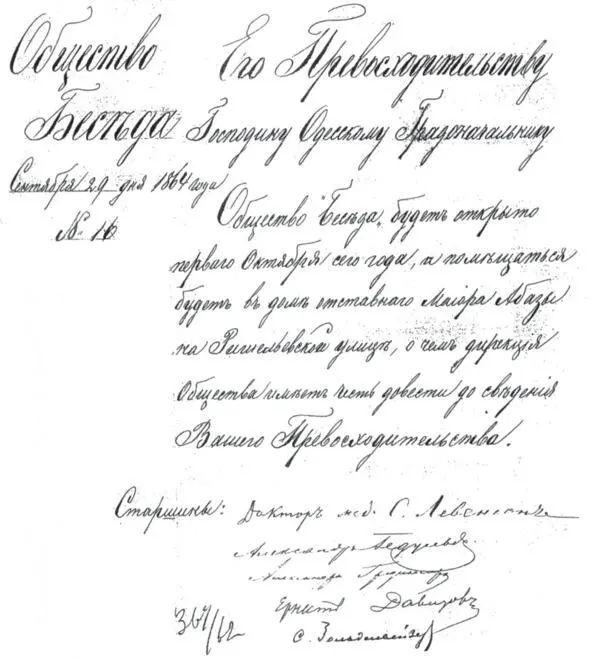 Общество
Бесѣда
Сентября 29 дня 1864 года
№ 16
Его Превосходительству
Господину Одесскому Градоначальнику
Общество Бесѣда, будетъ открыто
перваго Октября сего года, и помѣщаться
будетъ въ домѣ отставнаго Маіора Абазы
на Ришельевской улицѣ, о чемъ дирекція
Общества имѣетъ честь довести до свѣденія
Вашего Превосходительства.
Старшины: Докторъ мед. С. Левенсонъ
Александръ
Александръ
Ернстъ Давидовъ
С.